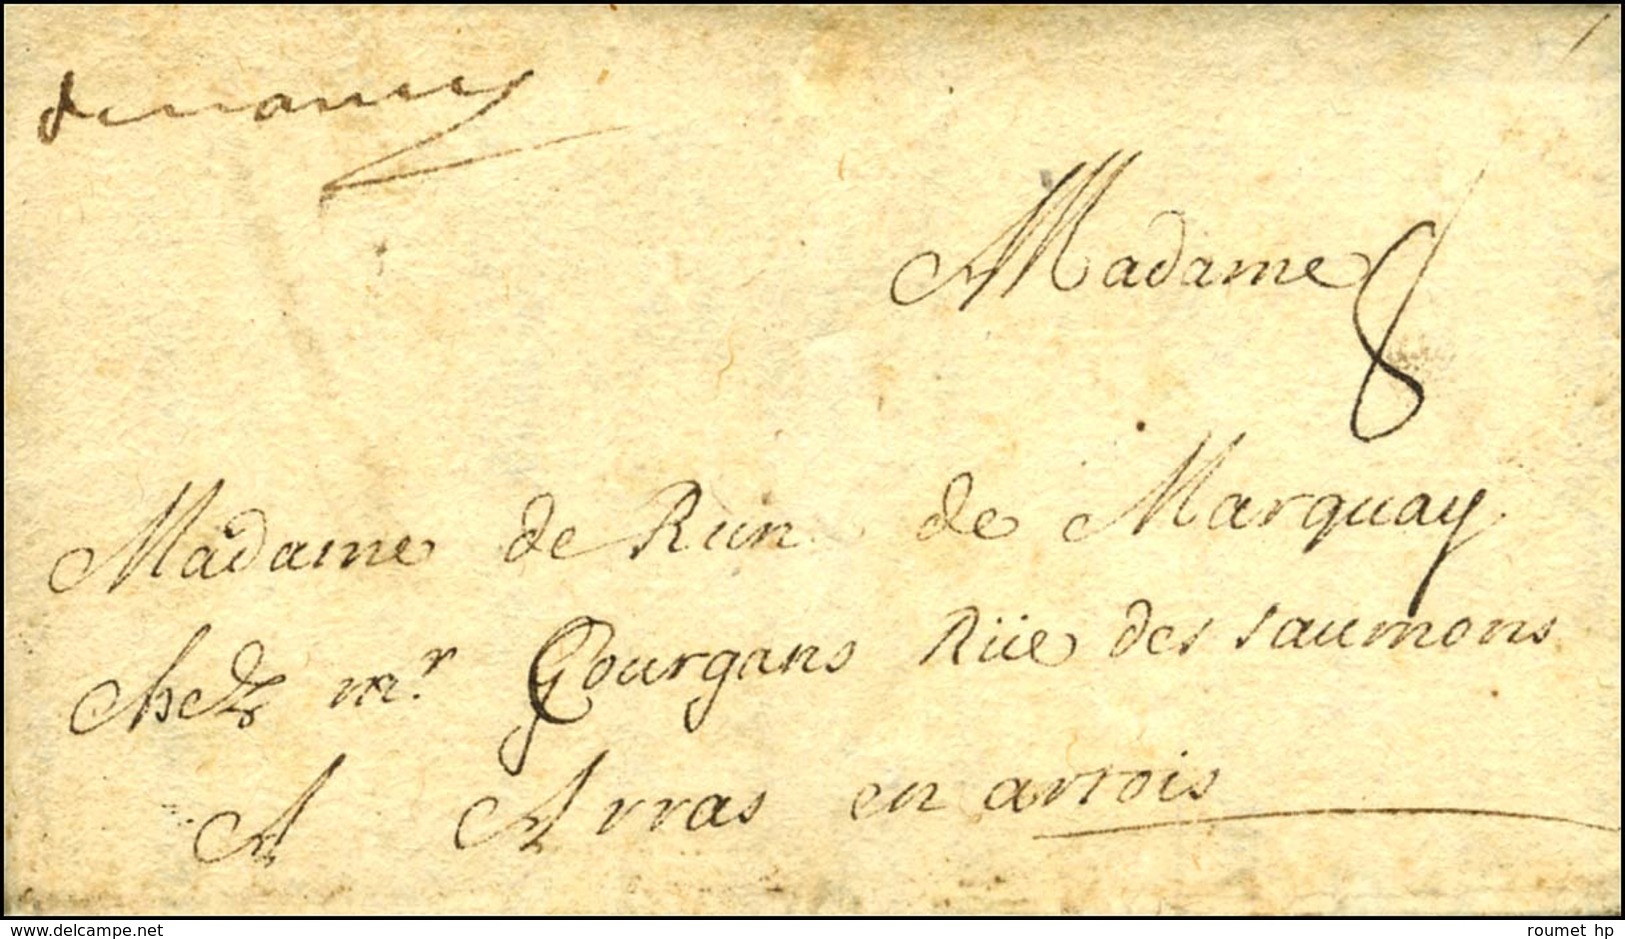 denamur
Madame
8
Madame de Run de Marquay
chez mr. Gourgans Rüe des saumons
A Arras en artois
delcampe.net
roumet hp